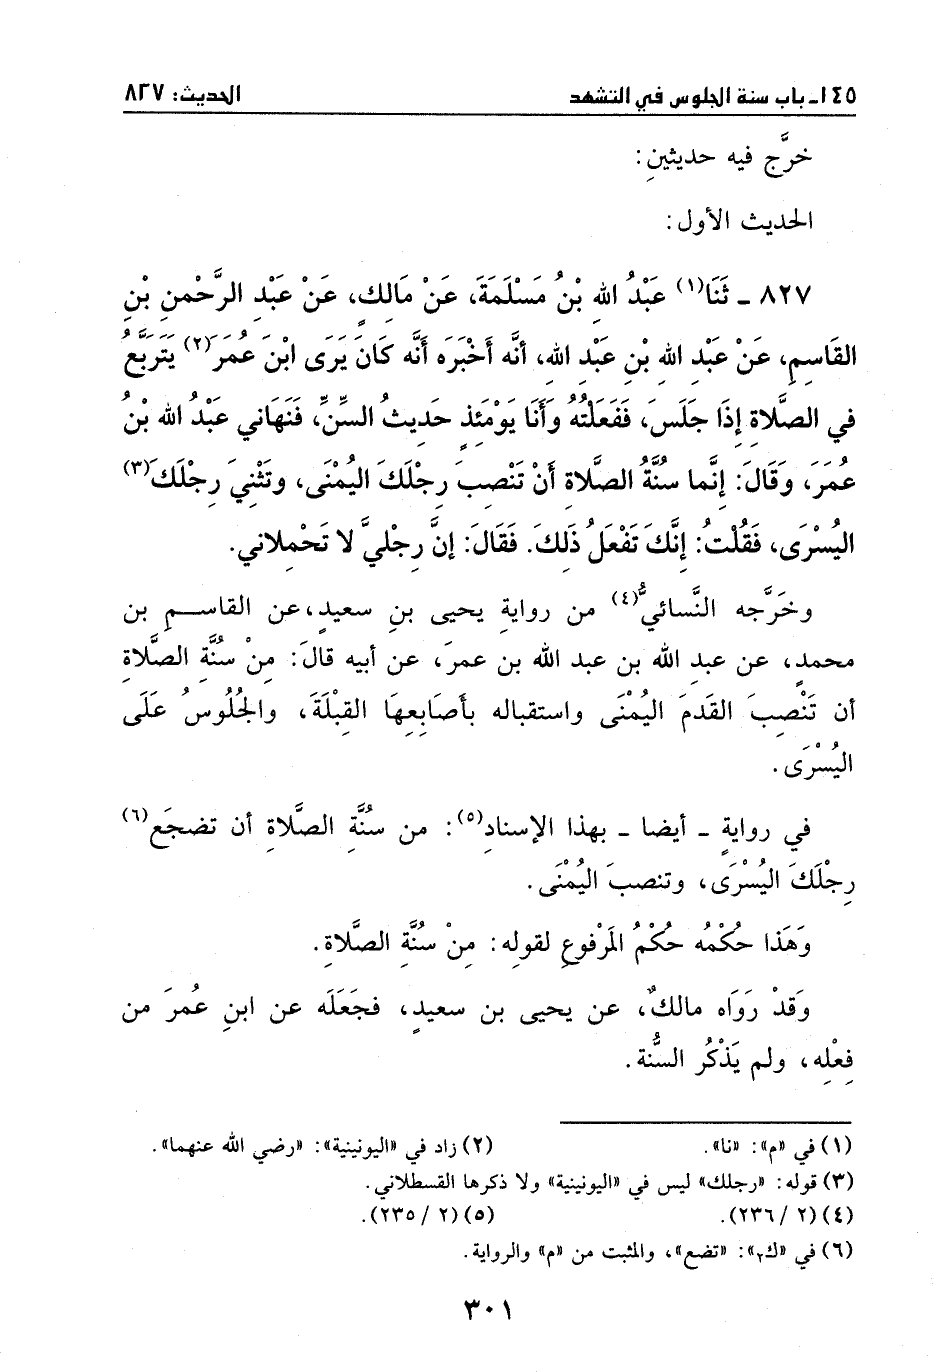 ١٤٥ـ باب سنة الجلوس في التشهد الحديث: ٨٢٧
خرَّج فيه حديثينِ:
الحديث الأول:
٨٢٧ ـ ثَنَا(١) عَبْدُ اللهِ بْنُ مَسْلَمَةَ، عَنْ مَالِكٍ، عَنْ عَبْدِ الرَّحْمنِ بْنِ
القَاسِمِ، عَنْ عَبْدِ اللهِ بْنِ عَبْدِ اللهِ، أنَّه أَخْبَرَه أنَّه كَانَ يَرَى ابْنَ عُمَرَ(٢) يَتَرَبَّعُ
في الصَّلَاةِ إذَا جَلَسَ، فَفَعَلْتُهُ وَأَنَا يَوْمَئِذٍ حَدِيثُ السِّنِّ، فَنَهَاني عَبْدُ اللهِ بْنُ
عُمَرَ، وَقَالَ: إنَّما سُنَّةُ الصَّلَاةِ أَنْ تَنْصِبَ رِجْلَكَ اليُمْنَى، وتَثْنِيَ رِجْلَكَ(٣)
اليُسْرَى، فَقُلْتُ: إنَّكَ تَفْعَلُ ذَلِكَ. فَقَالَ: إنَّ رِجْلَيَّ لَا تَحْمِلاني.
وخَرَّجه النَّسائيُّ(٤) من روايةِ يحيى بنِ سعيدٍ،عن القاسمِ بن
محمدٍ، عن عبدِ الله بن عبد الله بن عمرَ، عن أبيه قالَ: مِنْ سُنَّةِ الصَّلاةِ
أن تَنْصِبَ القَدمَ اليُمْنَى واستقباله بأَصَابِعِهَا القِبْلَةَ، والجُلُوسُ عَلَى
اليُسْرَى.
في روايةٍ ـ أيضا ـ بهذا الإسنادِ(٥): من سُنَّةِ الصَّلاةِ أن تضجَع(٦)
رِجْلَكَ اليُسْرَى، وتنصبَ اليُمْنَى.
وَهَذا حُكْمُه حُكْمُ المَرْفوعِ لقوله: مِنْ سُنَّةِ الصَّلاةِ.
وَقدْ رَوَاه مالكٌ، عن يحيى بن سعيدٍ، فجَعَلَه عن ابنِ عُمرَ من
فِعْلِه، ولم يَذْكُرِ السُّنة.
(١) في «م»: «نا». (٢) زاد في «اليونينية»: «رضي الله عنهما».
(٣) قوله: «رجلك» ليس في «اليونينية» ولا ذكرها القسطلاني.
(٤) (٢/ ٢٣٦). (٥) (٢/ ٢٣٥).
(٦) في «ك٢»: «تضع»، والمثبت من «م» والرواية.
٣٠١